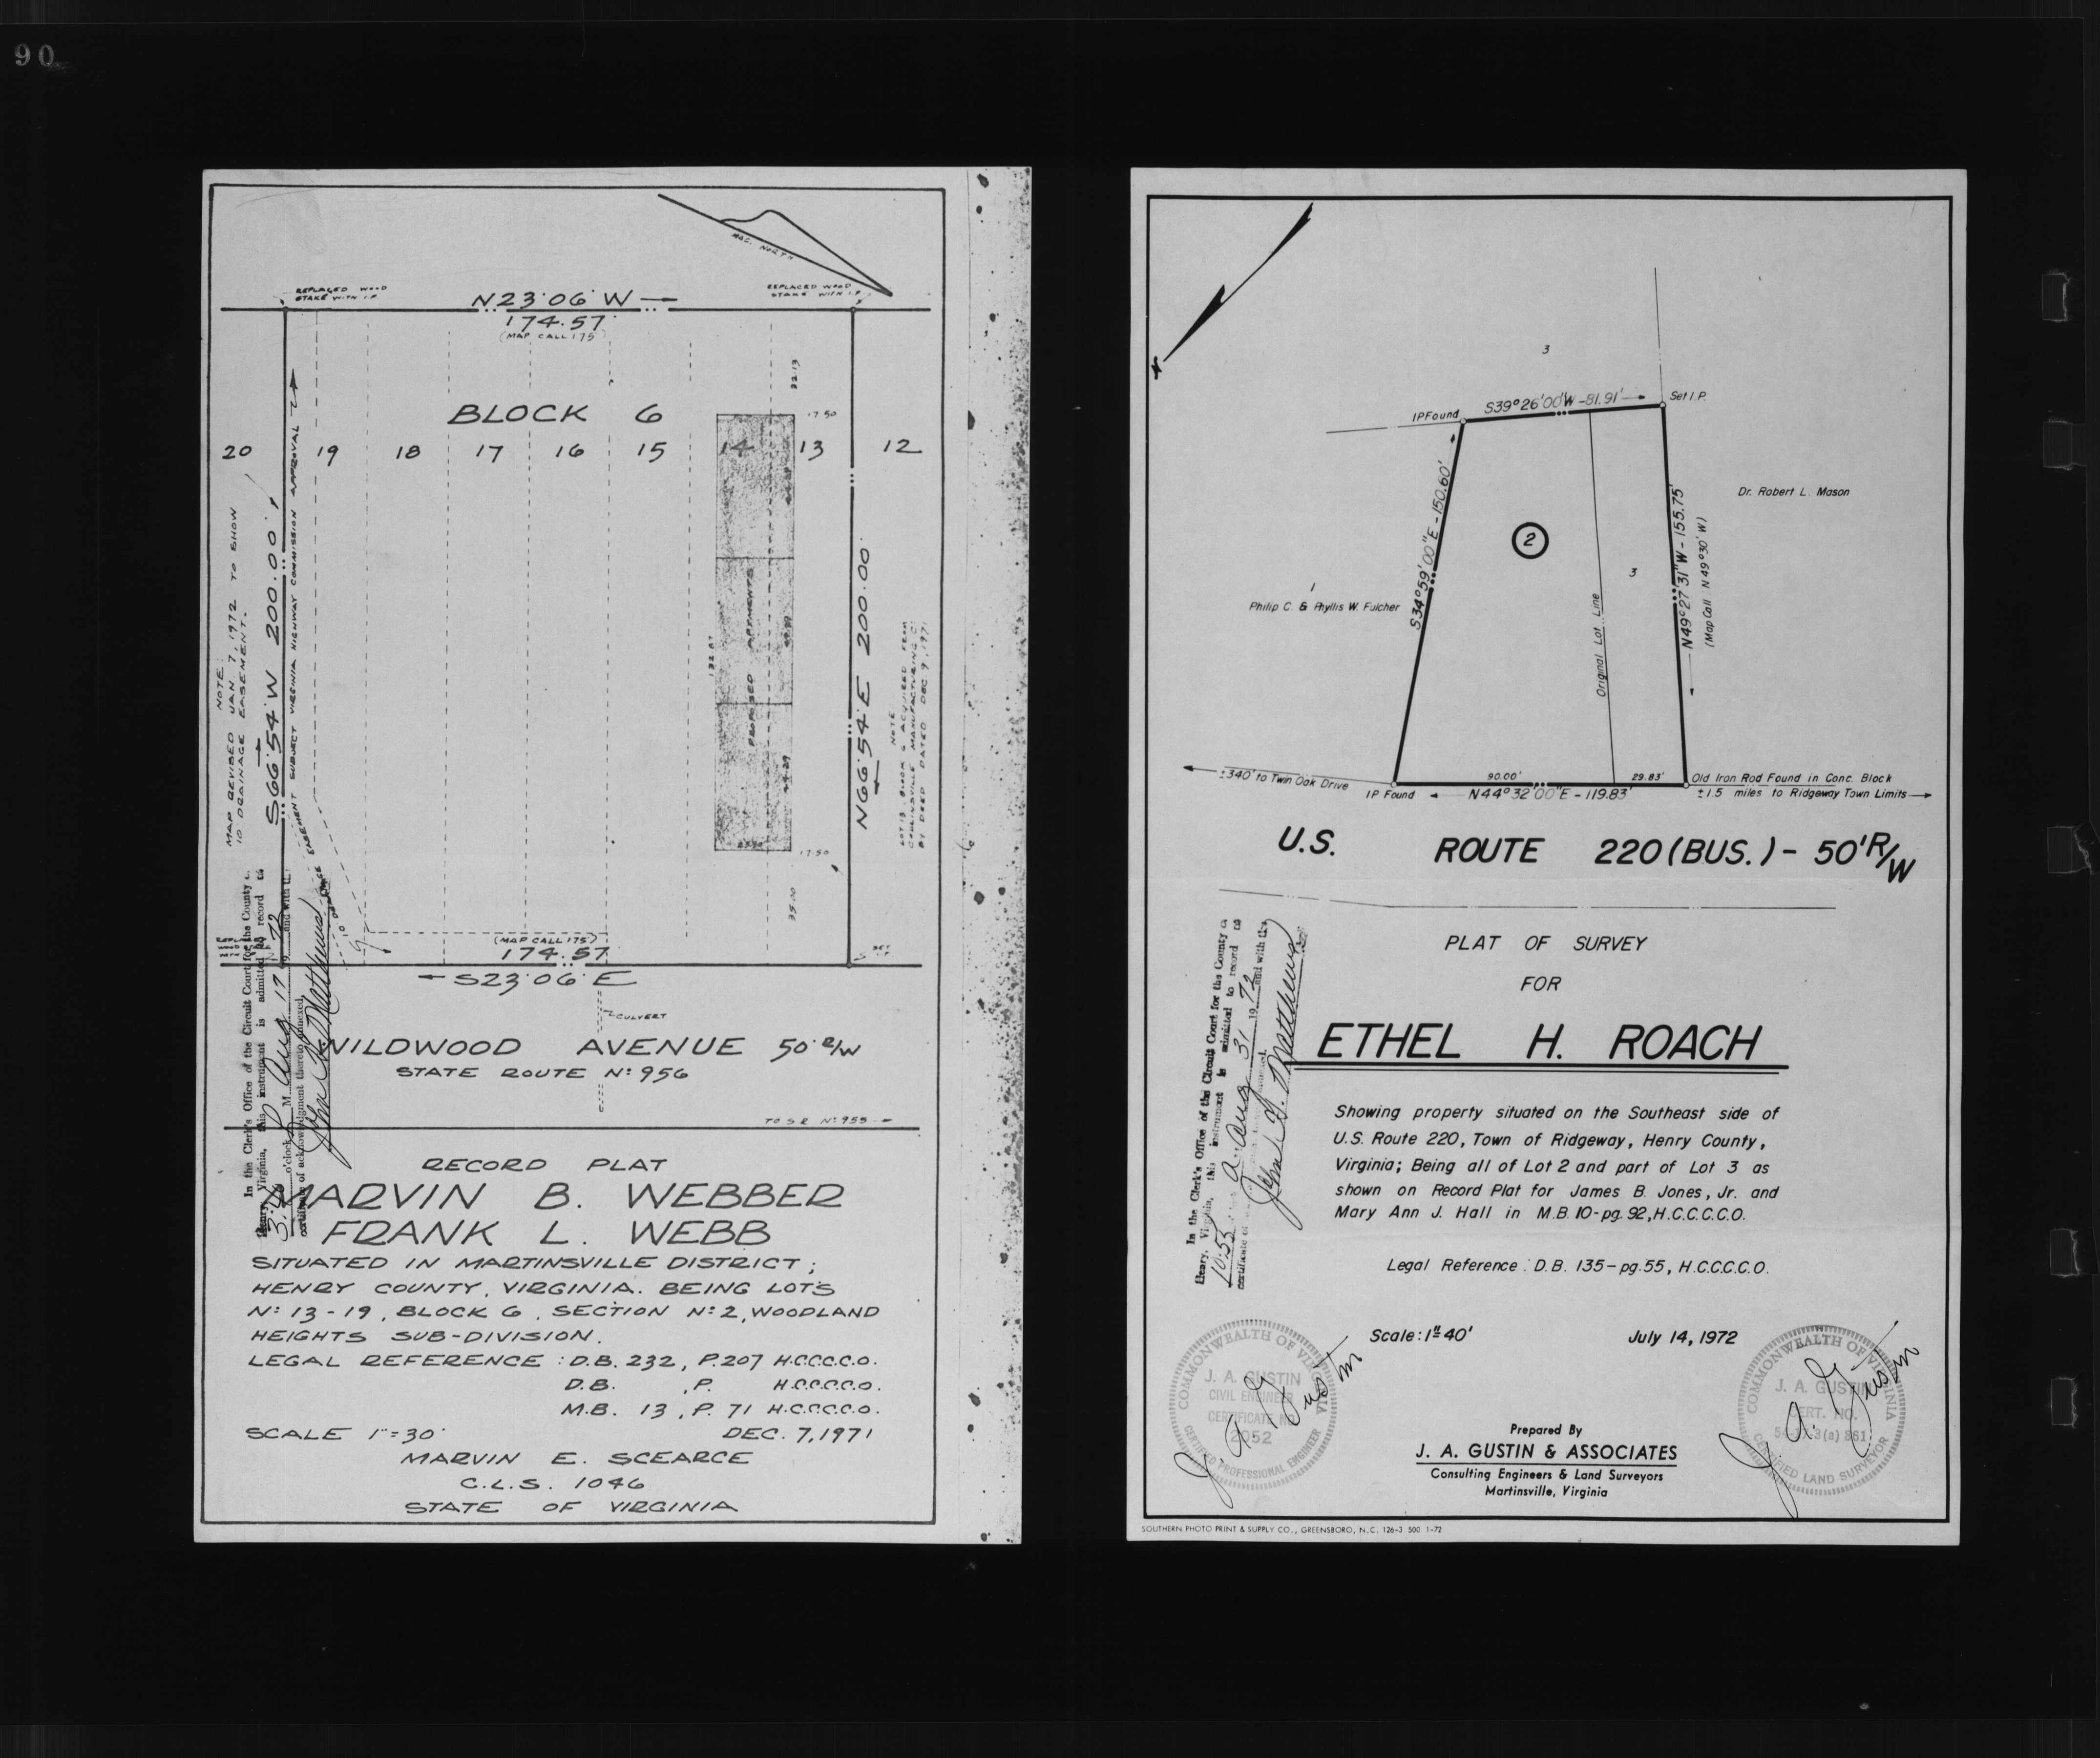 90
MAG. NORTH
REPLACED WOOD
STAKE WITH I.P.
N23°06'W
REPLACED WOOD
STAKE WITH I.P.
174.57'
(MAP CALL 175')
32.13
BLOCK 6
17.50
20 19 18 17 16 15 14 13 12
NOTE:
MAP REVISED JAN 7, 1972 TO SHOW
10' DRAINAGE EASEMENT.
S66°54'W 200.00'
EASEMENT SUBJECT VIRGINIA HIGHWAY COMISSION APPROVAL
PROPOSED
N66°54'E 200.00'
NOTE
LOT 13, BLOCK 6 ACQUIRED FROM
COLLINSVILLE MANUFACTURING C.
BY DEED DATED DEC 9, 1971
17.50
35.00
(MAP CALL 175')
174.57
S23°06'E
SET
CULVERT
WILDWOOD AVENUE 50' R/W
STATE ROUTE Nº 956
TO S.R. Nº 955
In the Clerk's Office of the Circuit Court for the County
Henry, Virginia, this instrument is admitted to record
3:46 o'clock P M. Aug 17 1972 and with
certificate of acknowledgment thereto annexed
RECORD PLAT
MARVIN B. WEBBER
FRANK L. WEBB
SITUATED IN MARTINSVILLE DISTRICT;
HENRY COUNTY, VIRGINIA. BEING LOTS
Nº 13-19, BLOCK 6, SECTION Nº 2, WOODLAND
HEIGHTS SUB-DIVISION.
LEGAL REFERENCE : D.B. 232, P. 207 H.C.C.C.O.
D.B. , P. H.C.C.C.O.
M.B. 13, P. 71 H.C.C.C.O.
SCALE 1"=30' DEC. 7, 1971
MARVIN E. SCEARCE
C.L.S. 1046
STATE OF VIRGINIA
3
IP Found
S39°26'00"W-81.91'
Set I.P.
S34°59'00"E-150.60'
2
Dr. Robert L. Mason
N49°27'31"W-155.75'
(Map Call N49°30'W)
3
1
Philip C. & Phyllis W. Fulcher
Original Lot Line
±340' to Twin Oak Drive
IP Found
90.00'
29.83'
N44°32'00"E-119.83'
Old Iron Rod Found in Conc. Block
±1.5 miles to Ridgeway Town Limits
U.S. ROUTE 220 (BUS.) - 50' R/W
In the Clerk's Office of the Circuit Court for the County
Henry, Virginia, this instrument is admitted to record
10:53 a Aug 31 1972 and with the
certificate of
John H. Matthews
PLAT OF SURVEY
FOR
ETHEL H. ROACH
Showing property situated on the Southeast side of
U.S. Route 220, Town of Ridgeway, Henry County,
Virginia; Being all of Lot 2 and part of Lot 3 as
shown on Record Plat for James B. Jones, Jr. and
Mary Ann J. Hall in M.B. 10-pg. 92, H.C.C.C.O.
Legal Reference : D.B. 135-pg. 55, H.C.C.C.O.
Scale: 1"=40' July 14, 1972
COMMONWEALTH OF VIRGINIA
J. A. GUSTIN
CIVIL ENGINEER
CERTIFICATE NO.
2052
CERTIFIED PROFESSIONAL ENGINEER
J. A. Gustin
COMMONWEALTH OF VIRGINIA
J. A. GUSTIN
CERT. NO.
CERTIFIED LAND SURVEYOR
J. A. Gustin
Prepared By
J. A. GUSTIN & ASSOCIATES
Consulting Engineers & Land Surveyors
Martinsville, Virginia
SOUTHERN PHOTO PRINT & SUPPLY CO., GREENSBORO, N.C. 126-3 500 1-72